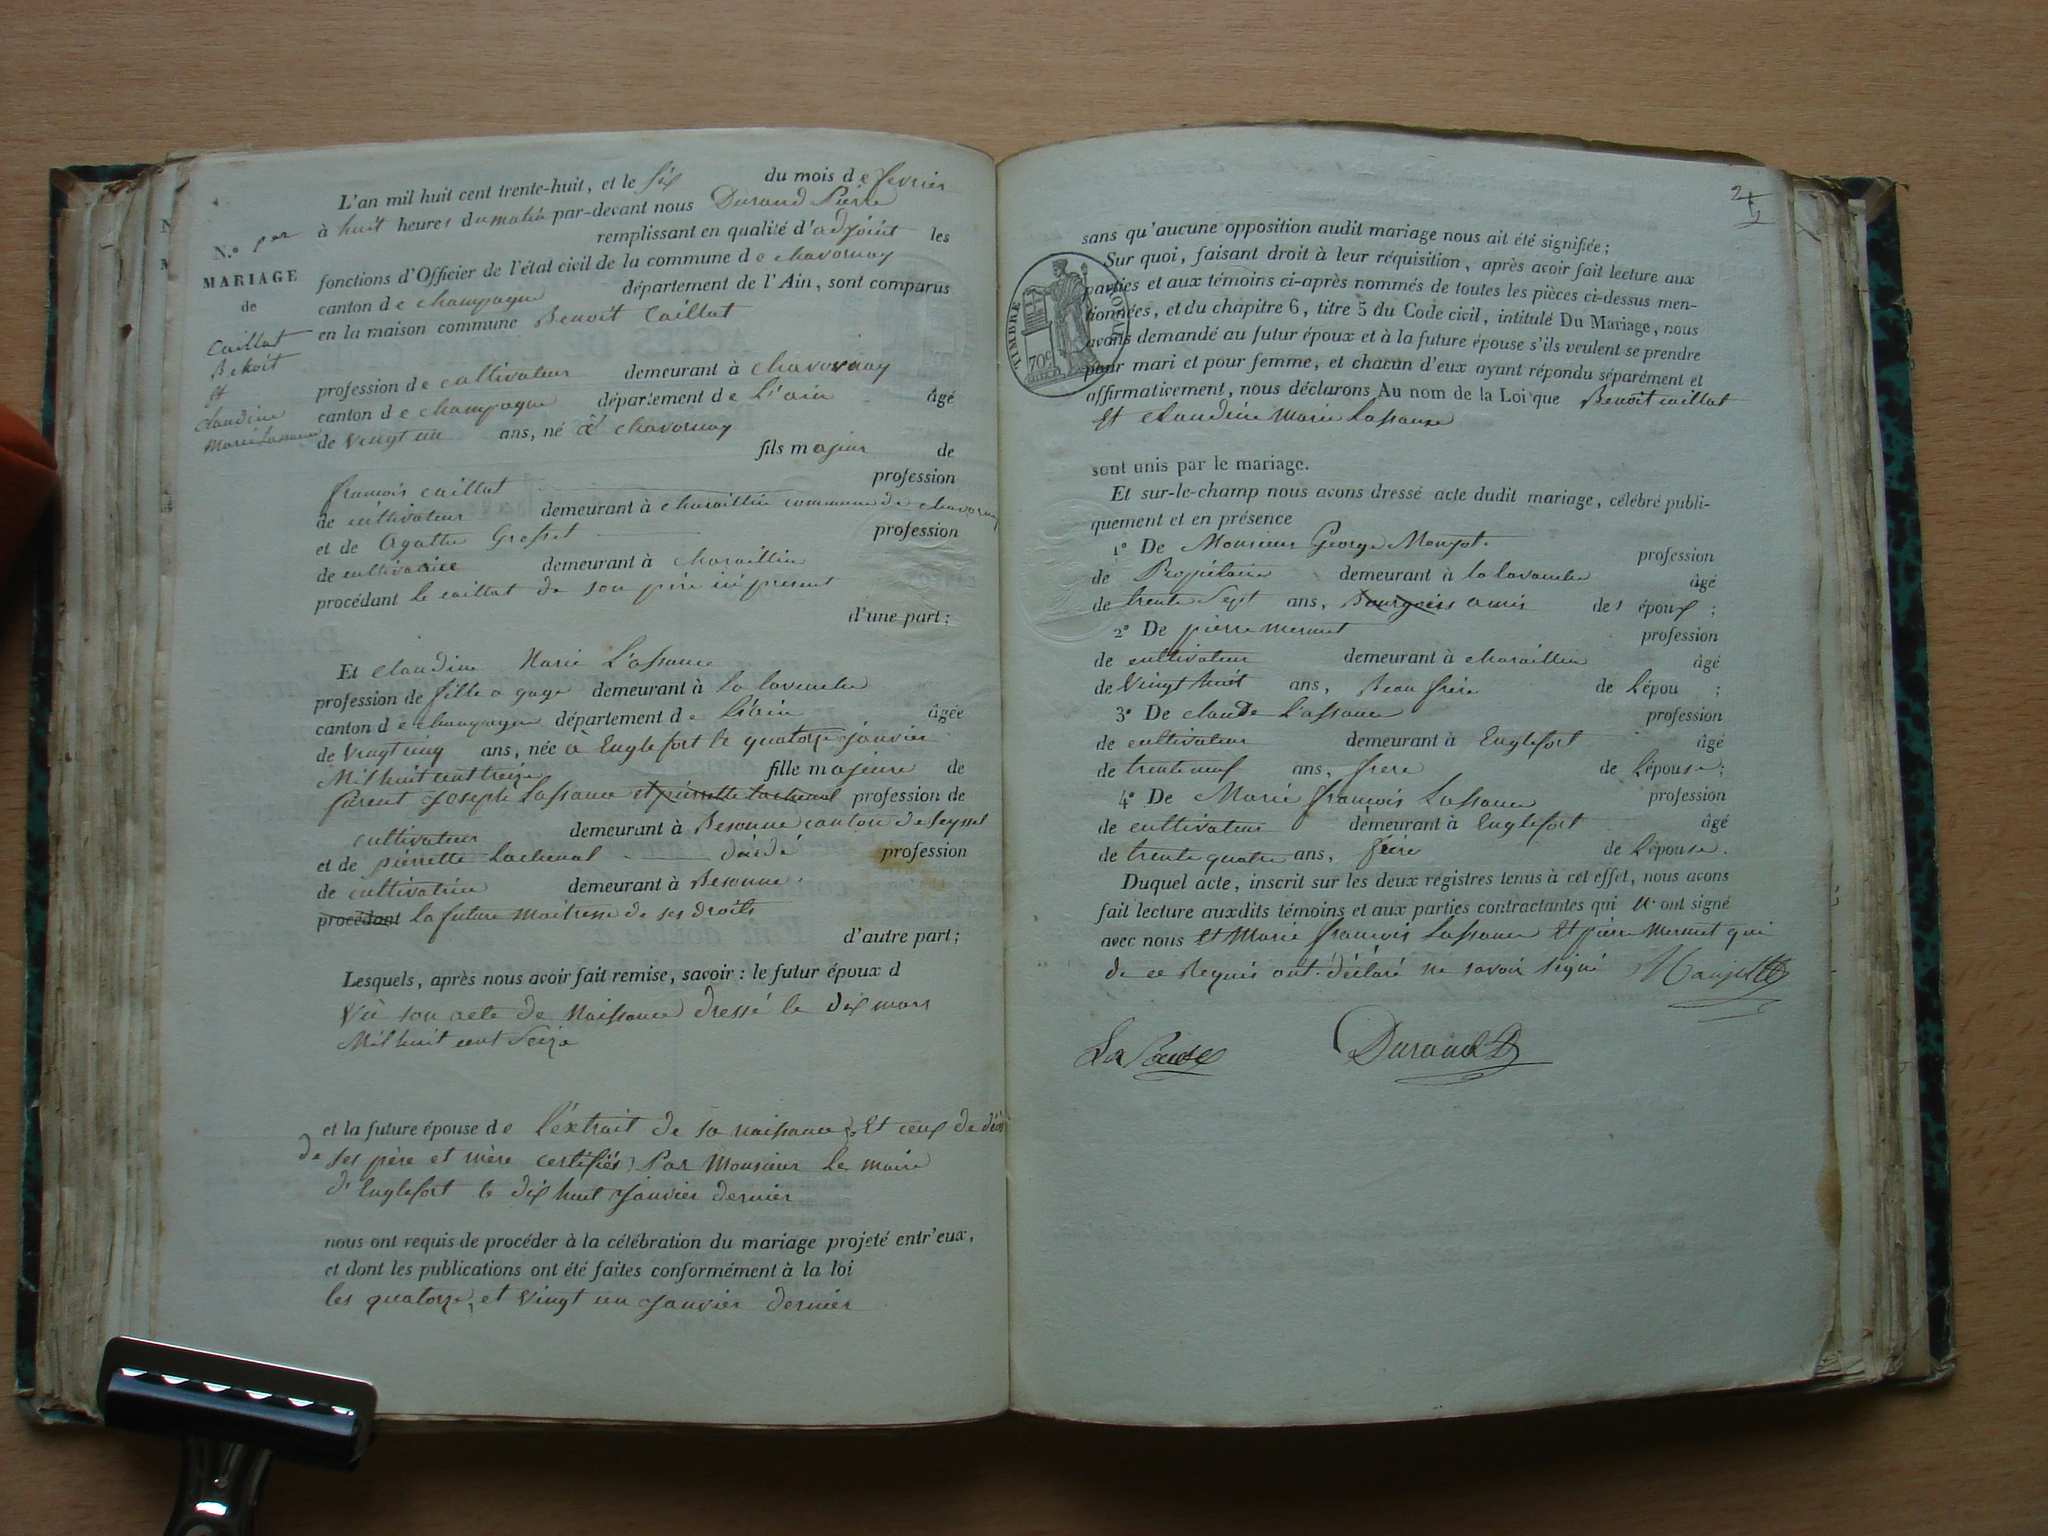 L'an mil huit cent trente-huit, et le six du mois de fevrier
à huit heures du matin par-devant nous Durand Pierre
remplissant en qualité d'adjoint les
fonctions d'Officier de l'état civil de la commune de chavornay
canton de champagne département de l'Ain, sont comparus
en la maison commune Benoit Caillat
N.º
MARIAGE
de
Caillat
Benoit
et
claudine
Marie Lassause
profession de cultivateur demeurant à chavornay
canton de champagne département de L'ain âgé
de vingt un ans, né à chavornay
fils majeur de
françois caillat profession
de cultivateur demeurant à charaillin commune de chavornay
et de Agathe Grosset profession
de cultivatrice demeurant à charaillin
procédant le caillat de son père ici present
d'une part;
Et claudine Marie L'assause
profession de fille a gage demeurant à la lavanche
canton de champagne département de L'ain âgée
de vingt cinq ans, née à Englefort le quatorze janvier
Mil huit cent treize fille majeure de
Parent Joseph Lassause et pierrette Lachenal profession de
cultivateur demeurant à Besonne canton de Seyssel
et de pierrette Lachenal profession
de cultivatrice demeurant à Besonne.
procédant la future Maitresse de ses droits
d'autre part;
Lesquels, après nous avoir fait remise, savoir: le futur époux d
Vu son acte de Naissance dressé le dix mars
Mil huit cent Seize
et la future épouse de l'extrait de sa naissance, Et ceux de décès
de ses père et mère certifiés Par Monsieur Le maire
d'Englefort le dix huit Janvier dernier
nous ont requis de procéder à la célébration du mariage projeté entr'eux,
et dont les publications ont été faites conformément à la loi
les quatorze, et vingt un Janvier dernier
2
sans qu'aucune opposition audit mariage nous ait été signifiée;
Sur quoi, faisant droit à leur réquisition, après avoir fait lecture aux
parties et aux témoins ci-après nommés de toutes les pièces ci-dessus men-
tionnées, et du chapitre 6, titre 5 du Code civil, intitulé Du Mariage, nous
avons demandé au futur époux et à la future épouse s'ils veulent se prendre
pour mari et pour femme, et chacun d'eux ayant répondu séparément et
affirmativement, nous déclarons Au nom de la Loi que Benoit caillat
Et claudine Marie Lassause
TIMBRE ROYAL
70c
sont unis par le mariage.
Et sur-le-champ nous avons dressé acte dudit mariage, célébré publi-
quement et en présence
1º De Monsieur George Monjot. profession
de Propriétaire demeurant à la lavanche âgé
de trente Sept ans, Bourgeois amis des époux;
2º De pierre mermet profession
de cultivateur demeurant à charaillin âgé
de vingt huit ans, Beau frère de Lépou;
3º De claude Lassause profession
de cultivateur demeurant à Englefort âgé
de trente neuf ans, frere de Lépouse;
4º De Marie françois Lassause profession
de cultivateur demeurant à Englefort âgé
de trente quatre ans, frère de Lépouse.
Duquel acte, inscrit sur les deux registres tenus à cet effet, nous avons
fait lecture auxdits témoins et aux parties contractantes qui n'ont signé
avec nous Et Marie françois Lassause Et pierre Mermet qui
de ce Requis ont déclaré ne savoir signé
Durand